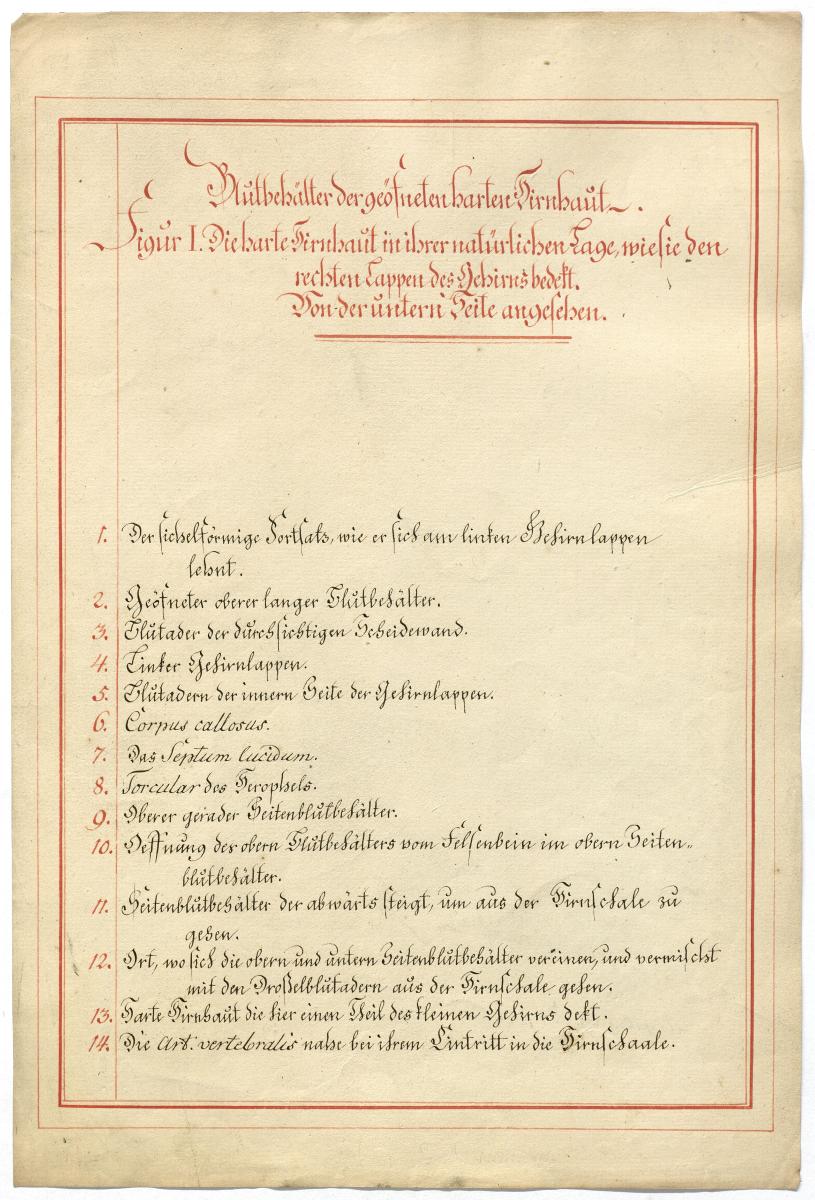 Blutbehälter der geöfneten harten Hirnhaut.
Figur I. Die harte Hirnhaut in ihrer natürlichen Lage, wie sie den
rechten Lappen des Gehirns bedekt.
Von der untern Seite angesehen.
1. Der sichelförmige Fortsatz, wie er sich am linken Gehirnlappen
lehnt.
2. Geöfneter oberer langer Blutbehälter.
3. Blutader der durchsichtigen Scheidewand.
4. Linker Gehirnlappen.
5. Blutadern der innern Seite der Gehirnlappen.
6. Corpus callosus.
7. Das Septum lucidum.
8. Torcular des Herophels.
9. Oberer gerader Seitenblutbehälter.
10. Oeffnung der obern Blutbehälters vom Felsenbein im obern Seiten„
blutbehälter.
11. Seitenblutbehälter der abwärts steigt, um aus der Hirnschale zu
gehen.
12. Ort, wo sich die obern und untern Seitenblutbehälter vereinen, und vermischt
mit den Droßelblutadern aus der Hirnschale gehen.
13. Harte Hirnhaut die hier einen Theil des kleinen Gehirns dekt.
14. Die Art: vertebralis nahe bei ihrem Eintritt in die Hirnschaale.